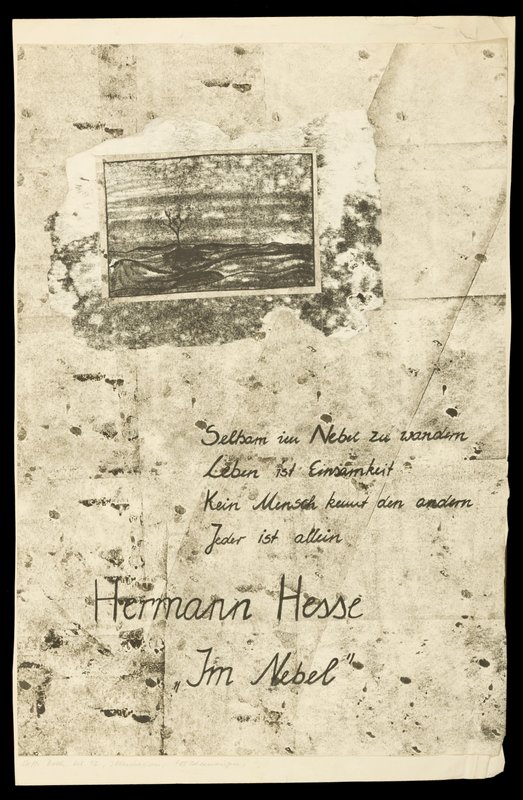 Seltsam im Nebel zu wandern
Leben ist Einsamkeit
Kein Mensch kennt den andern
Jeder ist allein
Hermann Hesse
„Im Nebel"